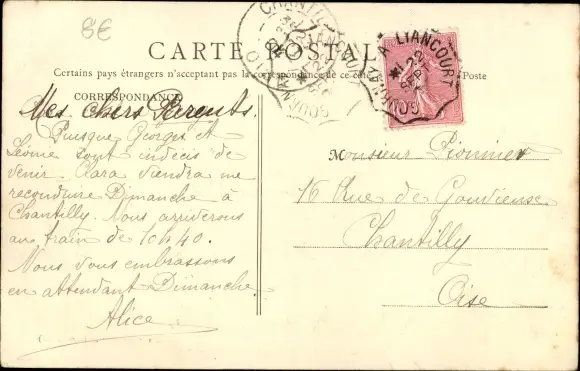 8€
CARTE POSTALE
Certains pays étrangers n'acceptent pas la correspondance de ce côté Poste
CORRESPONDANCE
Mes chers Parents.
Puisque Georges et
Léonie sont indécis de
venir Clara viendra me
reconduire Dimanche à
Chantilly. Nous arriverons
au train de 10h40.
Nous vous embrassons
en attendant Dimanche.
Alice
A LIANCOURT
22
SEPT
GOUVIEUX
CHANTILLY
OISE
Monsieur Pionnier
16 Rue de Gouvieux
Chantilly
Oise